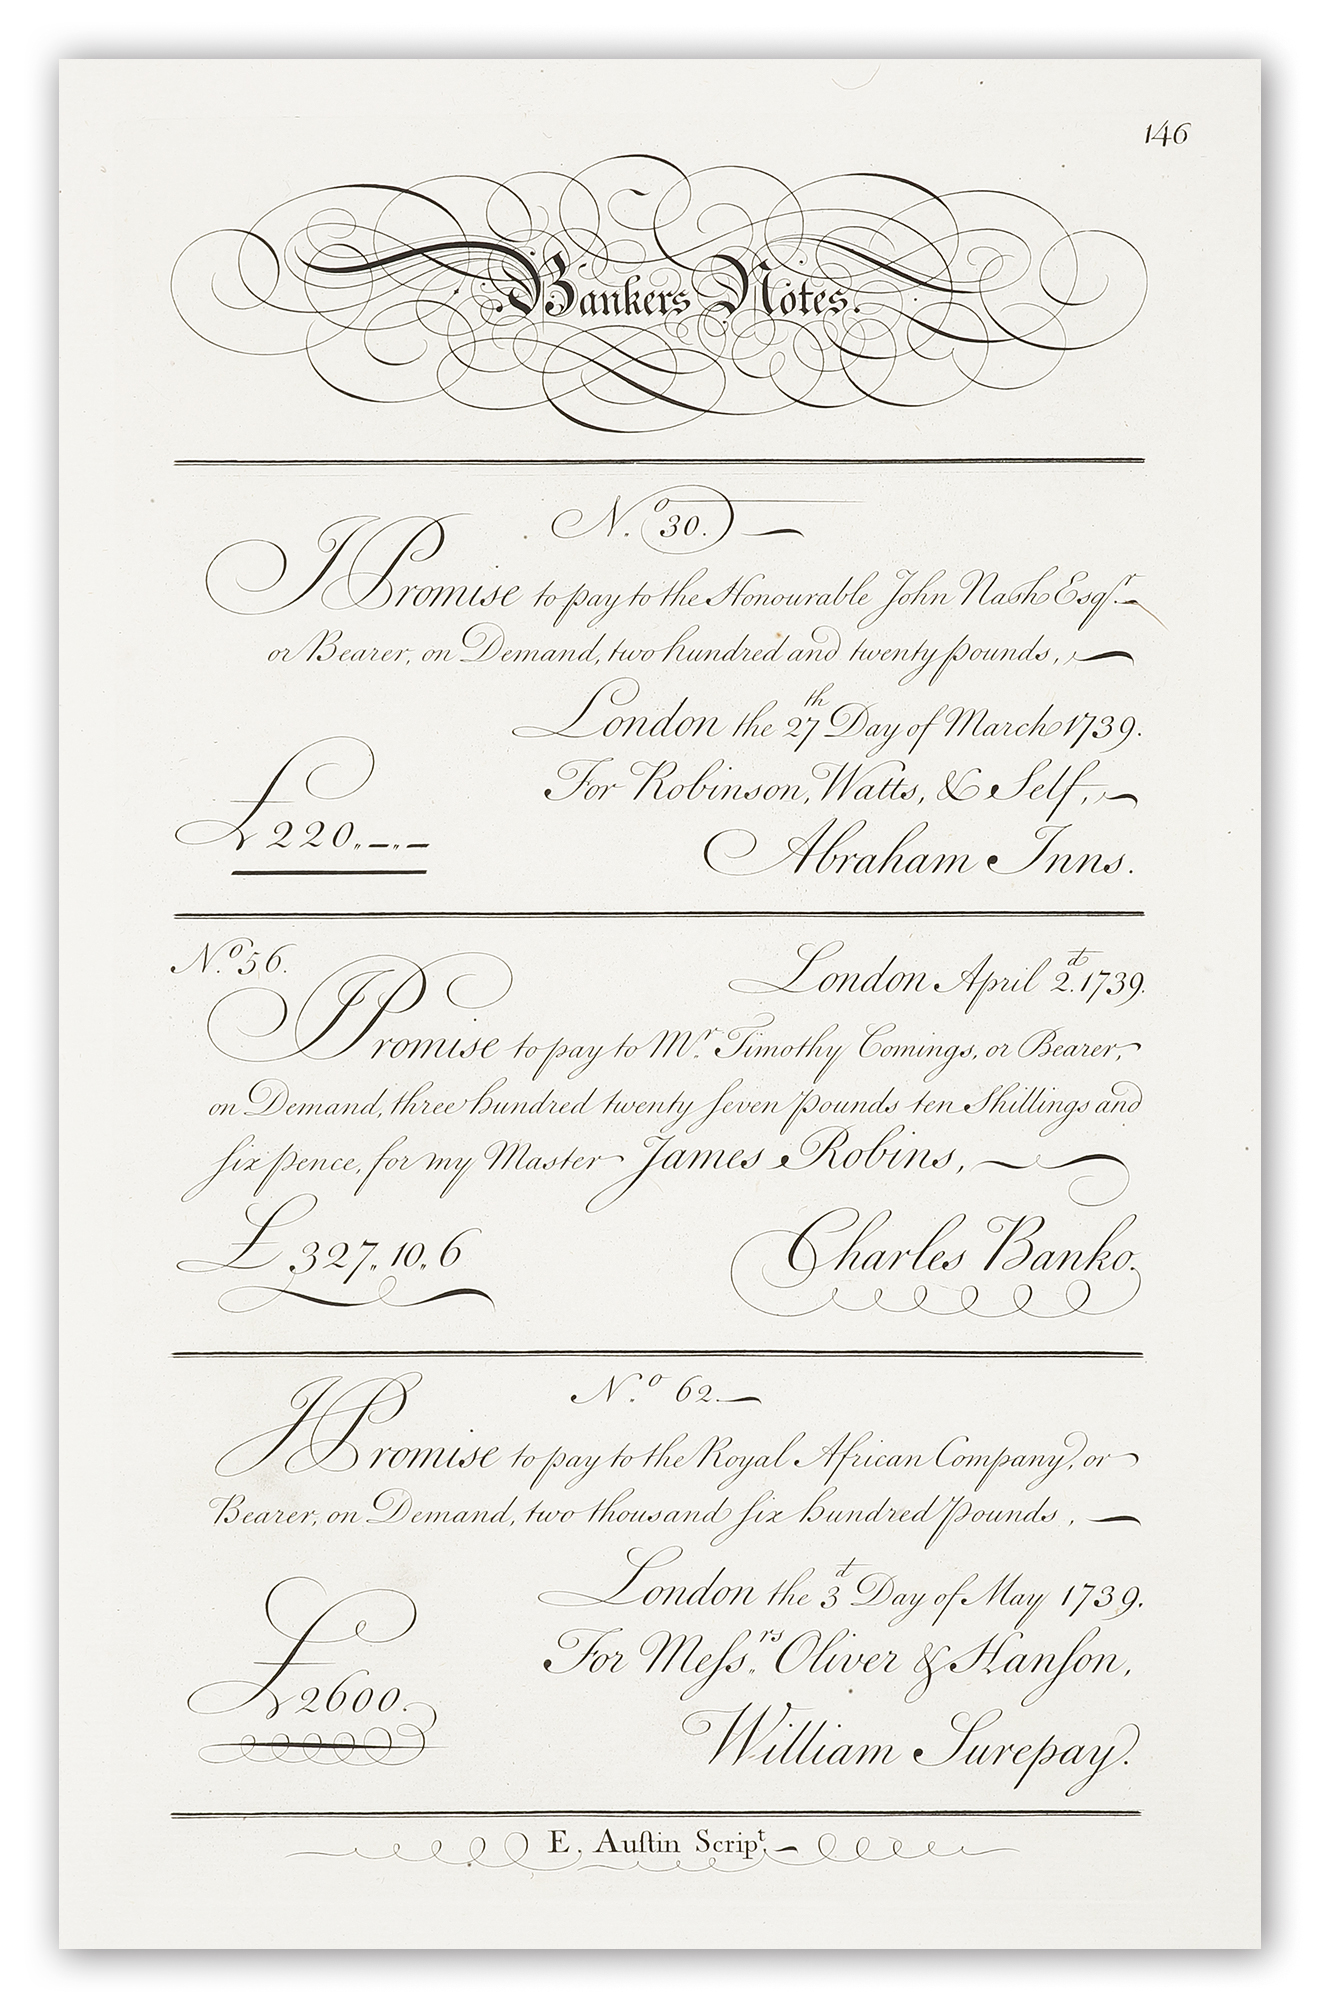 146
Bankers Notes.
N.º 30.
I Promise to pay to the Honourable John Nash Esqr.
or Bearer, on Demand, two hundred and twenty pounds,
London the 27th Day of March 1739.
For Robinson, Watts, & Self,
£220.,—.,—
Abraham Inns.
N.º 56.
London April 2d. 1739.
I Promise to pay to Mr. Timothy Comings, or Bearer,
on Demand, three hundred twenty ſeven pounds ten Shillings and
ſix pence, for my Master James Robins,
£ 327,, 10,, 6
Charles Banko.
N.º 62.
I Promise to pay to the Royal African Company, or
Bearer, on Demand, two thousand ſix hundred Pounds,
London the 3d Day of May 1739.
For Meſsrs. Oliver & Hanſon,
£2600.
William Surepay.
E. Auſtin Scripᵗ.